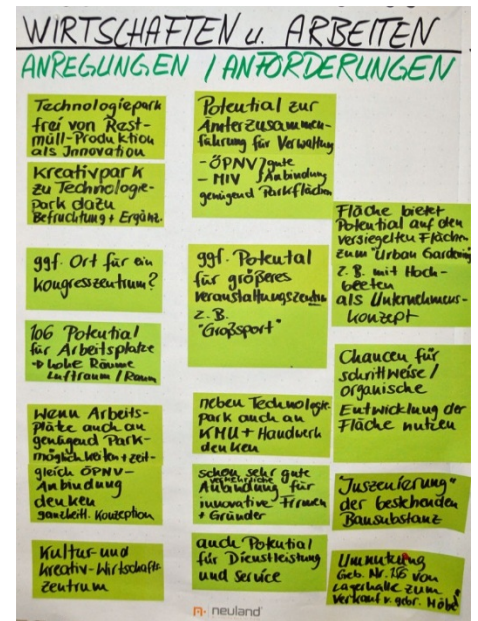 WIRTSCHAFTEN u. ARBEITEN
ANREGUNGEN / ANFORDERUNGEN
Technologiepark
frei von Rest-
müll-Produktion
als Innovation
Kreativpark
zu Technologie-
Park dazu
Befruchtung + Ergänz.
ggf. Ort für ein
Kongresszentrum?
106 Potential
für Arbeitsplätze
→ hohe Räume
Luftraum / Raum
Wenn Arbeits-
plätze auch an
genügend Park-
möglichkeiten + zeit-
gleich ÖPNV-
Anbindung
denken
ganzheitl. Konzeption
Kultur- und
Kreativ-Wirtschafts-
zentrum
Potential zur
Ämterzusammen-
führung für Verwaltung
- ÖPNV } gute
- MIV } Anbindung
genügend Parkflächen
ggf. Potential
für größeres
Veranstaltungszentrum
z.B.
"Großsport"
neben Technologie-
park auch an
KMU + Handwerk
denken
schon sehr gute
verkehrliche
Anbindung für
innovative Firmen
+ Gründer
auch Potential
für Dienstleistung
und Service
Fläche bietet
Potential auf den
versiegelten Flächen
zum "Urban Gardening"
z.B. mit Hoch-
beeten
als Unternehmens-
konzept
Chancen für
schrittweise /
organische
Entwicklung der
Fläche nutzen
"Inszenierung"
der bestehenden
Bausubstanz
Umnutzung
Geb. Nr. von
Lagerhalle zum
Verkauf v. gebr. Möbel
neuland